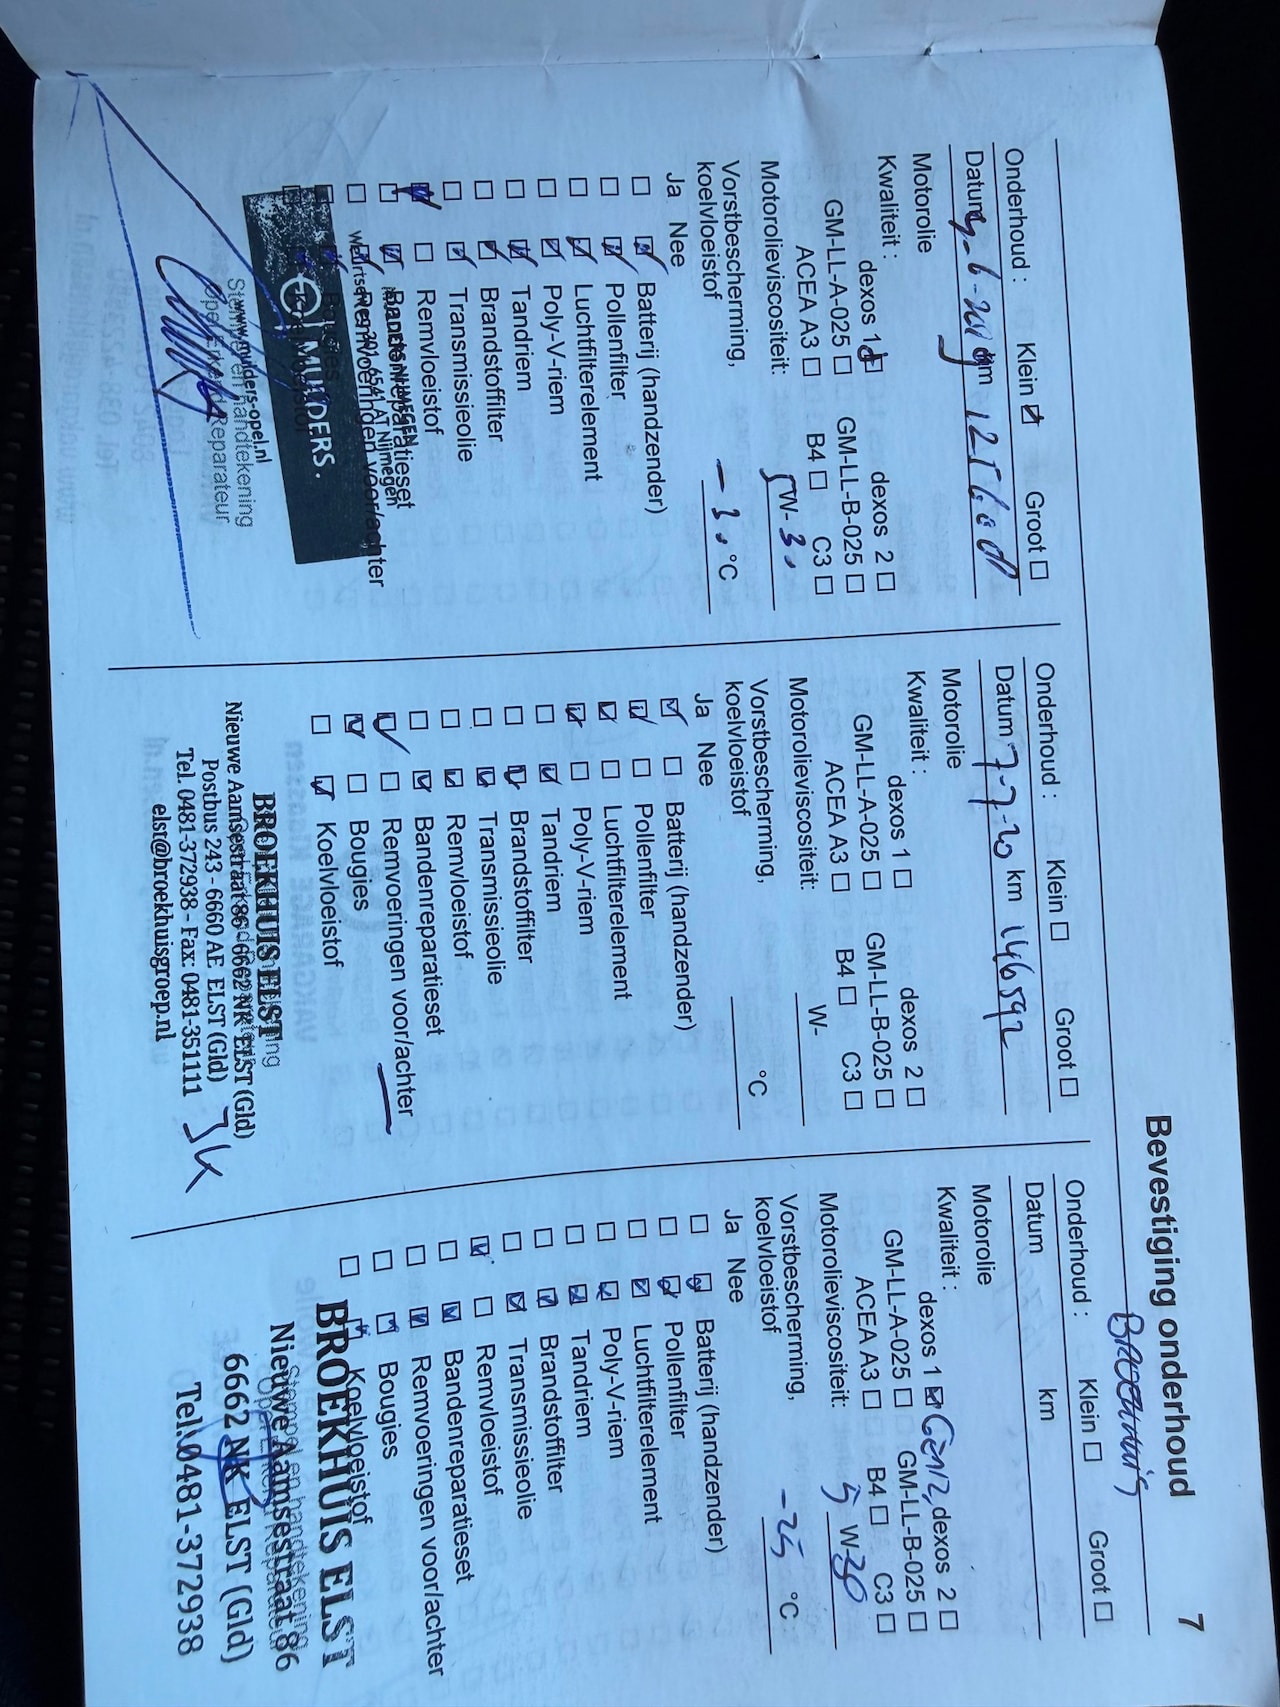 Bevestiging onderhoud 7
Onderhoud : Klein ☑ Groot ☐
Datum km
Motorolie
Kwaliteit : dexos 1 ☑ dexos 2 ☐
GM-LL-A-025 ☐ GM-LL-B-025 ☐
ACEA A3 ☐ B4 ☐ C3 ☐
Motorolieviscositeit: 5W-30
Vorstbescherming,
koelvloeistof -30 °C
Ja Nee
☐ ☑ Batterij (handzender)
☐ ☑ Pollenfilter
☐ ☑ Luchtfilterelement
☐ ☑ Poly-V-riem
☐ ☑ Tandriem
☐ ☑ Brandstoffilter
☐ ☑ Transmissieolie
☑ ☐ Remvloeistof
☐ ☑ Bandenreparatieset
☐ ☑ Remvoeringen voor/achter
☐ ☑ Bougies
MULDERS.
6541 AT Nijmegen
www.mulders-opel.nl
Stempel en handtekening
Opel Erkend Reparateur
Onderhoud : Klein ☐ Groot ☐
Datum 7-7-20 km 146592
Motorolie
Kwaliteit : dexos 1 ☐ dexos 2 ☐
GM-LL-A-025 ☐ GM-LL-B-025 ☐
ACEA A3 ☐ B4 ☐ C3 ☐
Motorolieviscositeit: W-
Vorstbescherming,
koelvloeistof °C
Ja Nee
☑ ☐ Batterij (handzender)
☑ ☐ Pollenfilter
☑ ☐ Luchtfilterelement
☑ ☐ Poly-V-riem
☐ ☑ Tandriem
☐ ☑ Brandstoffilter
☐ ☑ Transmissieolie
☐ ☑ Remvloeistof
☐ ☑ Bandenreparatieset
☑ ☐ Remvoeringen voor/achter
☑ ☐ Bougies
☐ ☑ Koelvloeistof
BROEKHUIS ELST
Nieuwe Aamsestraat 86 - 6662 NK ELST (Gld)
Postbus 243 - 6660 AE ELST (Gld)
Tel. 0481-372938 - Fax: 0481-351111
elst@broekhuisgroep.nl
Broekhuis
Onderhoud : Klein ☐ Groot ☐
Datum km
Motorolie
Kwaliteit : dexos 1 ☑ Gen2, dexos 2 ☐
GM-LL-A-025 ☐ GM-LL-B-025 ☐
ACEA A3 ☐ B4 ☐ C3 ☐
Motorolieviscositeit: 5 W-30
Vorstbescherming,
koelvloeistof -25 °C
Ja Nee
☐ ☑ Batterij (handzender)
☐ ☑ Pollenfilter
☐ ☑ Luchtfilterelement
☐ ☑ Poly-V-riem
☐ ☑ Tandriem
☐ ☑ Brandstoffilter
☐ ☑ Transmissieolie
☑ ☐ Remvloeistof
☐ ☑ Bandenreparatieset
☐ ☑ Remvoeringen voor/achter
☐ ☑ Bougies
☐ ☑ Koelvloeistof
BROEKHUIS ELST
Stempel en handtekening
Nieuwe Aamsestraat 86
6662 NK ELST (Gld)
Tel. 0481-372938